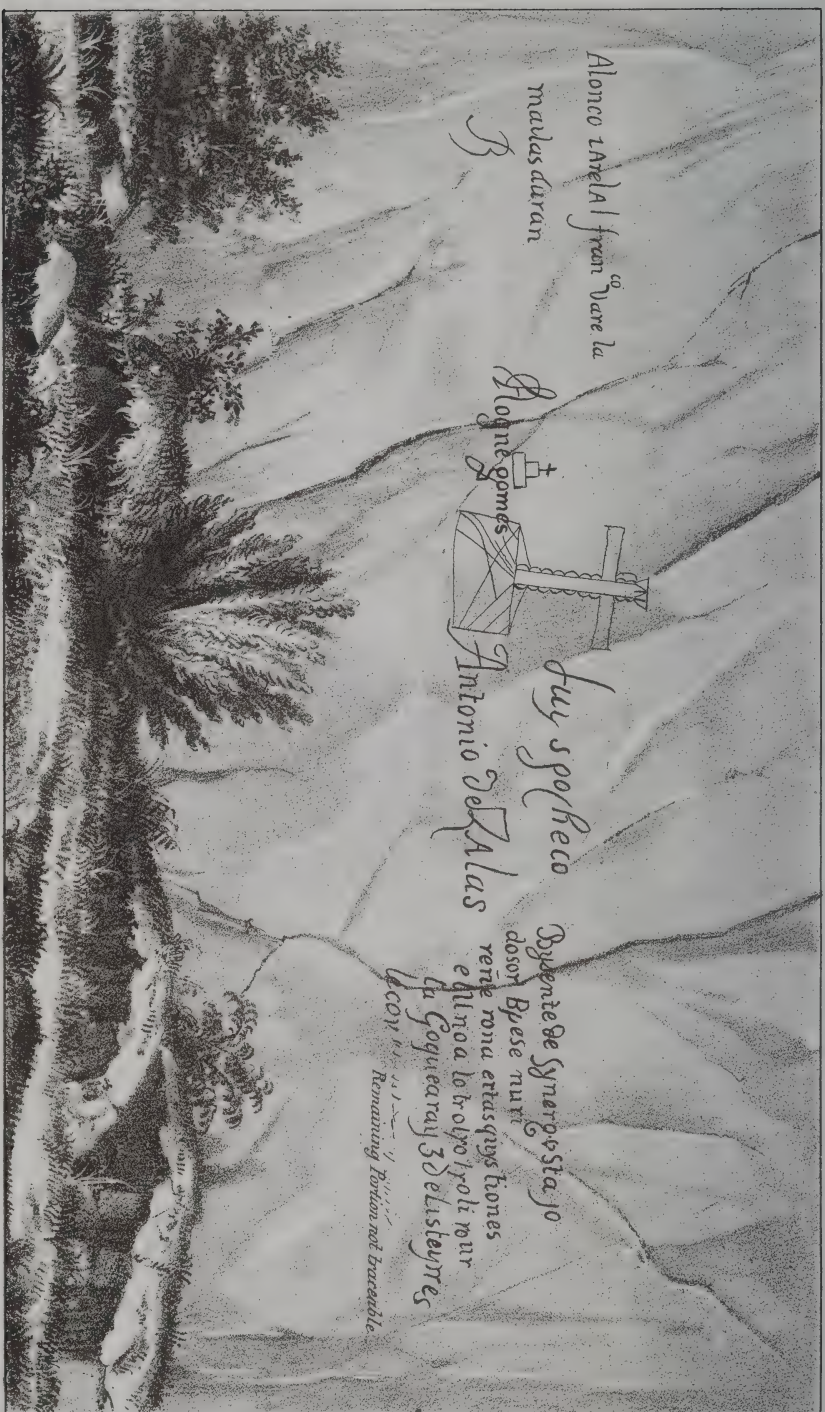 Alonco zArelAl fran co Vare la
malas duran
B
Rogne gomes
Luy s pocheco
Antonio de ZAlas
Bysente de Synergo Sta jo
dosor Byese nuri
reñe rona ertasquys hones
e ull no a lo brolyo troli rour
la Goquearay 3 delisleyrres
lecon
Remaining Portion not traceable